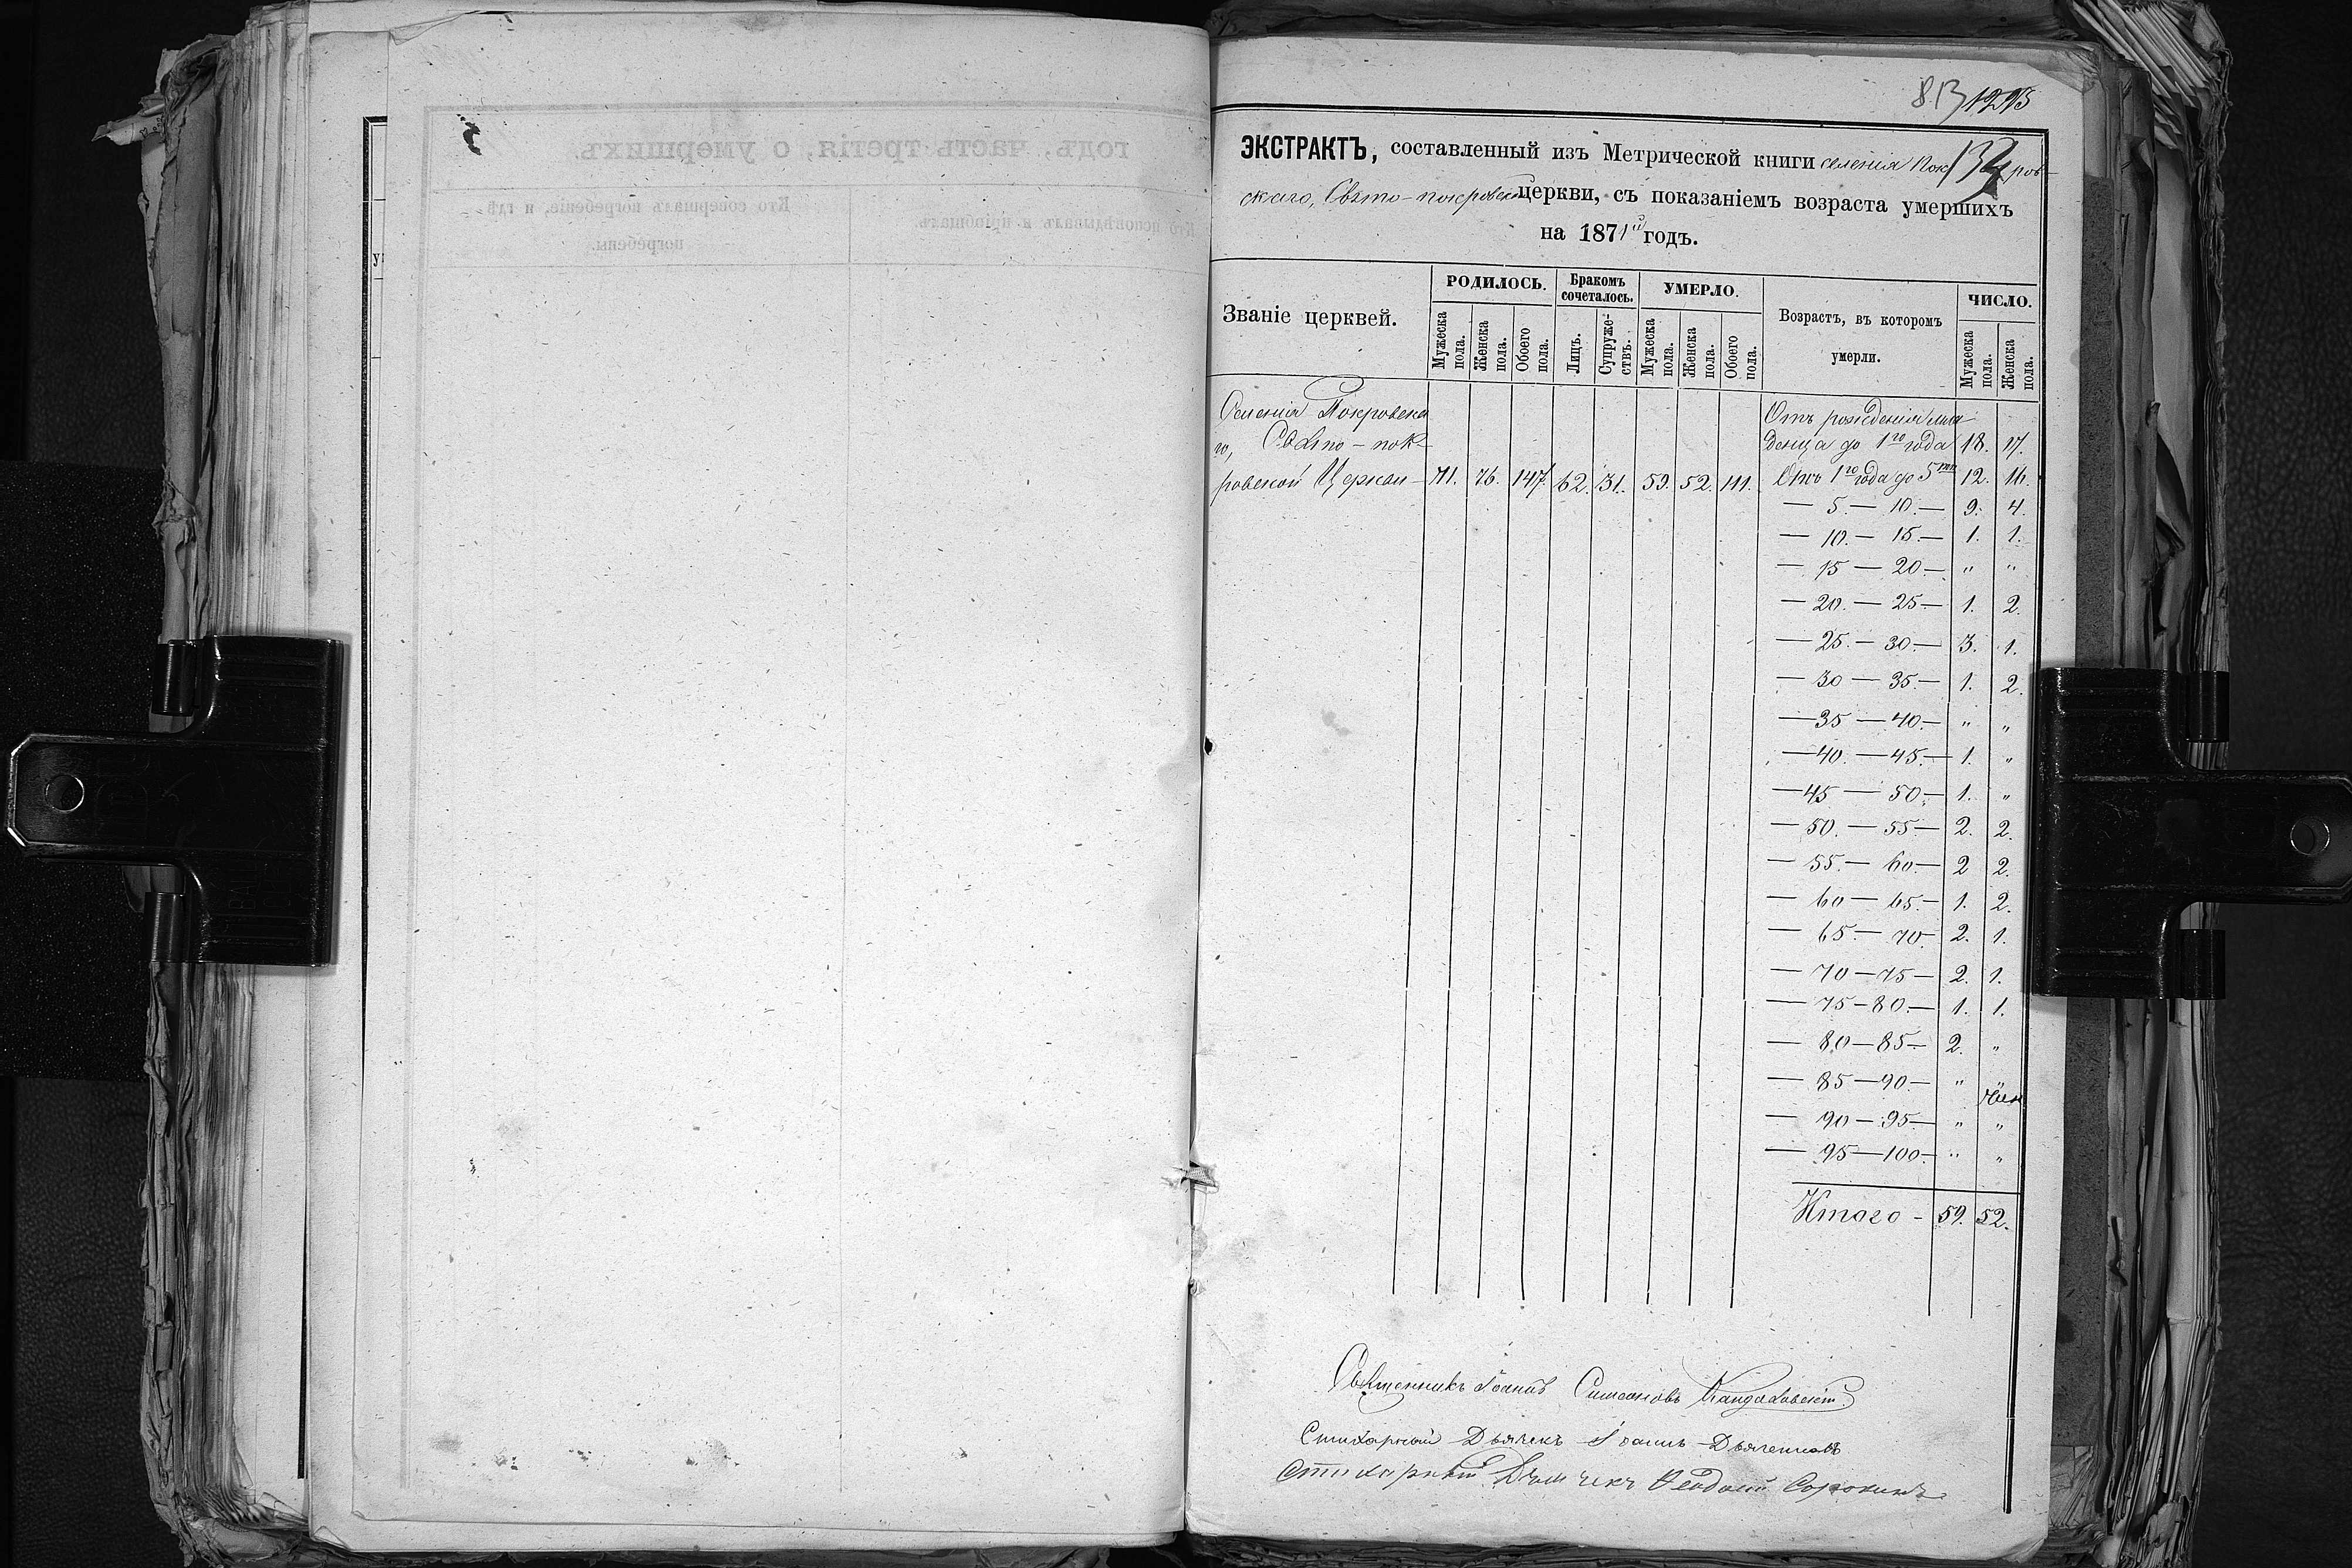 813 1293
134
ЭКСТРАКТЪ, составленный изъ Метрической книги селенія Покров-
скаго, Свято-покровской церкви, съ показаніемъ возраста умершихъ
на 1871й годъ.
Званіе церквей.
РОДИЛОСЬ.
Мужеска пола.
Женска пола.
Обоего пола.
Бракомъ сочеталось.
Лицъ.
Супружествъ.
УМЕРЛО.
Мужеска пола.
Женска пола.
Обоего пола.
Возрастъ, въ которомъ умерли.
ЧИСЛО.
Мужеска пола.
Женска пола.
Селенія Покровска
го, Свято-пок-
ровской Церкви 71. 76. 147. 62. 31. 59. 52. 111.
Отъ рожденія мла
денца до 1го года 18. 17.
Отъ 1го года до 5ти 12. 16.
— 5. — 10. — 9. 4.
— 10. — 15. — 1. 1.
— 15 — 20. — „ „
— 20. — 25 — 1. 2.
— 25. — 30. — 3. 1.
— 30 — 35. — 1. 2.
— 35 — 40. — „ „
— 40. — 45. — 1. „
— 45 — 50. — 1. „
— 50. — 55 — 2. 2.
— 55. — 60. — 2 2.
— 60 — 65. — 1. 2.
— 65. — 70. 2. 1.
— 70 — 75 — 2. 1.
— 75 — 80. — 1. 1.
— 80 — 85. — 2. „
— 85 — 90. — „
— 90 — 95 — „ „
— 95 — 100. — „ „
Итого - 59. 52.
Священникъ Іоаннъ Симеоновъ
Стихарный Дьячекъ Іоаннъ Дьяченковъ
Стихарный Дьячекъ Сорокинъ
годъ, часть третія, о умершихъ.
Кто исповѣдывалъ и пріобщалъ.
Кто совершалъ погребеніе, и гдѣ
погребены.